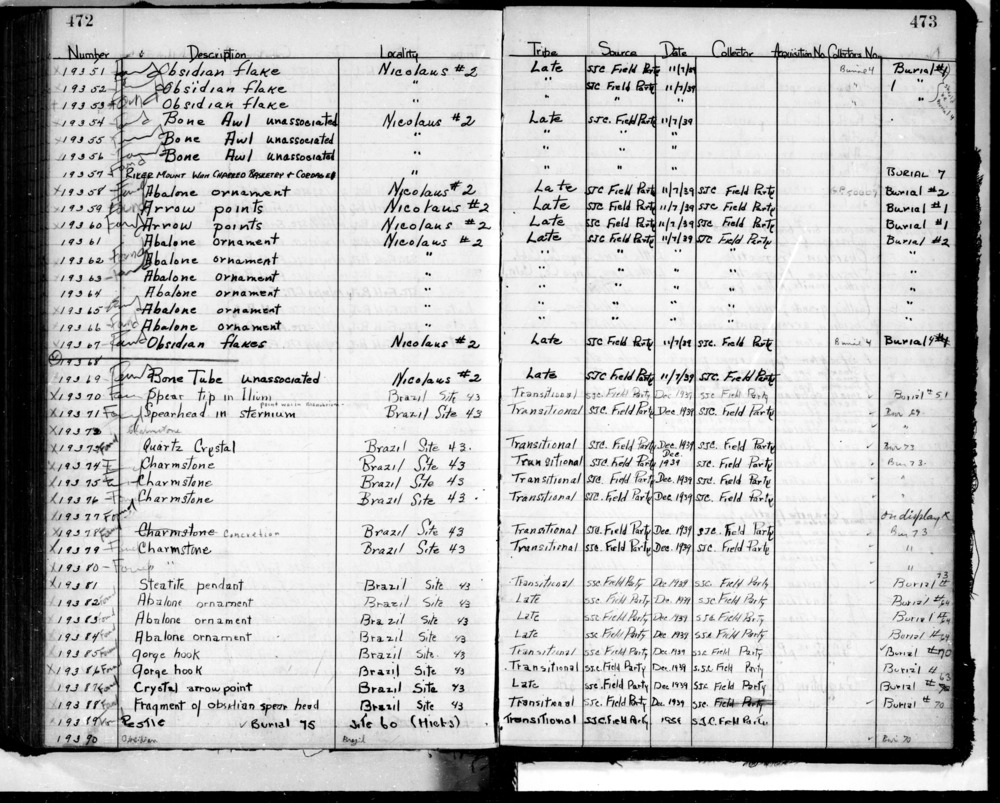 472 473
Number Description Locality Tribe Source Date Collector Acquisition No. Collectors No.
19351 Found Obsidian flake Nicolaus #2 Late SJC. Field Party 11/7/39 Burial 4 Burial #4
19352 Obsidian flake " " SJC Field Party 11/7/39 "
19353 Found Obsidian flake " " " " "
19354 Bone Awl unassociated Nicolaus #2 Late SJC. Field Party 11/7/39
19355 Bone Awl unassociated " " " "
19356 Found Bone Awl unassociated " " " "
19357 Found Riker Mount With Charred Basketry + Cordage " " BURIAL 7
19358 Found Abalone ornament Nicolaus #2 Late SJC Field Party 11/7/39 SJC Field Party Burial #2
19359 Found Arrow points Nicolaus #2 Late SJC. Field Party 11/7/39 SJC. Field Party Burial #1
19360 Found Arrow points Nicolaus #2 Late SJC Field Party 11/7/39 SJC. Field Party Burial #1
19361 Abalone ornament Nicolaus #2 Late SJC Field Party 11/7/39 SJC. Field Party Burial #2
19362 Found Abalone ornament " " " " " "
19363 Found Abalone ornament " " " " " "
19364 Abalone ornament " " " " " "
19365 Found Abalone ornament " " " " " "
19366 Found Abalone ornament " " " " " "
19367 Found Obsidian flakes Nicolaus #2 Late SJC Field Party 11/7/39 SJC. Field Party Burial 4 Burial #4
19368
19369 Found Bone Tube unassociated Nicolaus #2 Late SJC Field Party 11/7/39 SJC. Field Party
19370 Spear tip in Ilium Brazil Site 43 Transitional SJC. Field Party Dec 1939 SJC Field Party Burial 51
19371 Found Spearhead in sternium Brazil Site 43 Transitional SJC. Field Party Dec. 1939 SJC. Field Party Bur 69
19372 Charmstone "
19373 Found Quartz Crystal Brazil Site 43. Transitional SJC. Field Party Dec. 1939 SJC. Field Party Bur 73
19374 F Charmstone Brazil Site 43 Transitional SJC. Field Party Dec. 1939 SJC. Field Party Bur. 73.
19375 F Charmstone Brazil Site 43 Transitional SJC. Field Party Dec. 1939 SJC. Field Party "
19376 F Charmstone Brazil Site 43. Transitional SJC. Field Party Dec. 1939 SJC. Field Party "
19377 Found on display K
19378 Found Charmstone Concretion Brazil Site 43 Transitional SJC. Field Party Dec. 1939 SJC. Field Party Bur. 73
19379 Charmstone Brazil Site 43 Transitional SJC. Field Party Dec. 1939 SJC. Field Party "
19380 Found " "
19381 Steatite pendant Brazil Site 43 Transitional SJC. Field Party Dec 1939 SJC. Field Party Burial # 73
19382 Abalone ornament Brazil Site 43 Late SJC. Field Party Dec. 1939 SJC Field Party Burial #64
19383 Abalone ornament Brazil Site 43 Late SJC. Field Party Dec. 1939 SJC Field Party Burial #64
19384 Abalone ornament Brazil Site 43 Late SJC. Field Party Dec 1939 SJC Field Party Burial #64
19385 Gorge hook Brazil Site. 43 Transitional SJC Field Party Dec. 1939 SJC Field Party Burial #70
19386 Gorge hook Brazil Site 43 Transitional SJC Field Party Dec. 1939 SJC Field Party Burial # 63
19387 Crystal arrow point Brazil Site 43 Late SJC. Field Party Dec 1939 SJC Field Party Burial #70
19388 Fragment of obsidian spear head Brazil Site 43 Transitional SJC. Field Party Dec. 1939 SJC. Field Party Burial # 70
19389 Pestle Burial 75 Site 60 (Hicks) Transitional S.J.C. Field Party S.J.C. Field Party
19390 Obsidian Brazil Bur 70